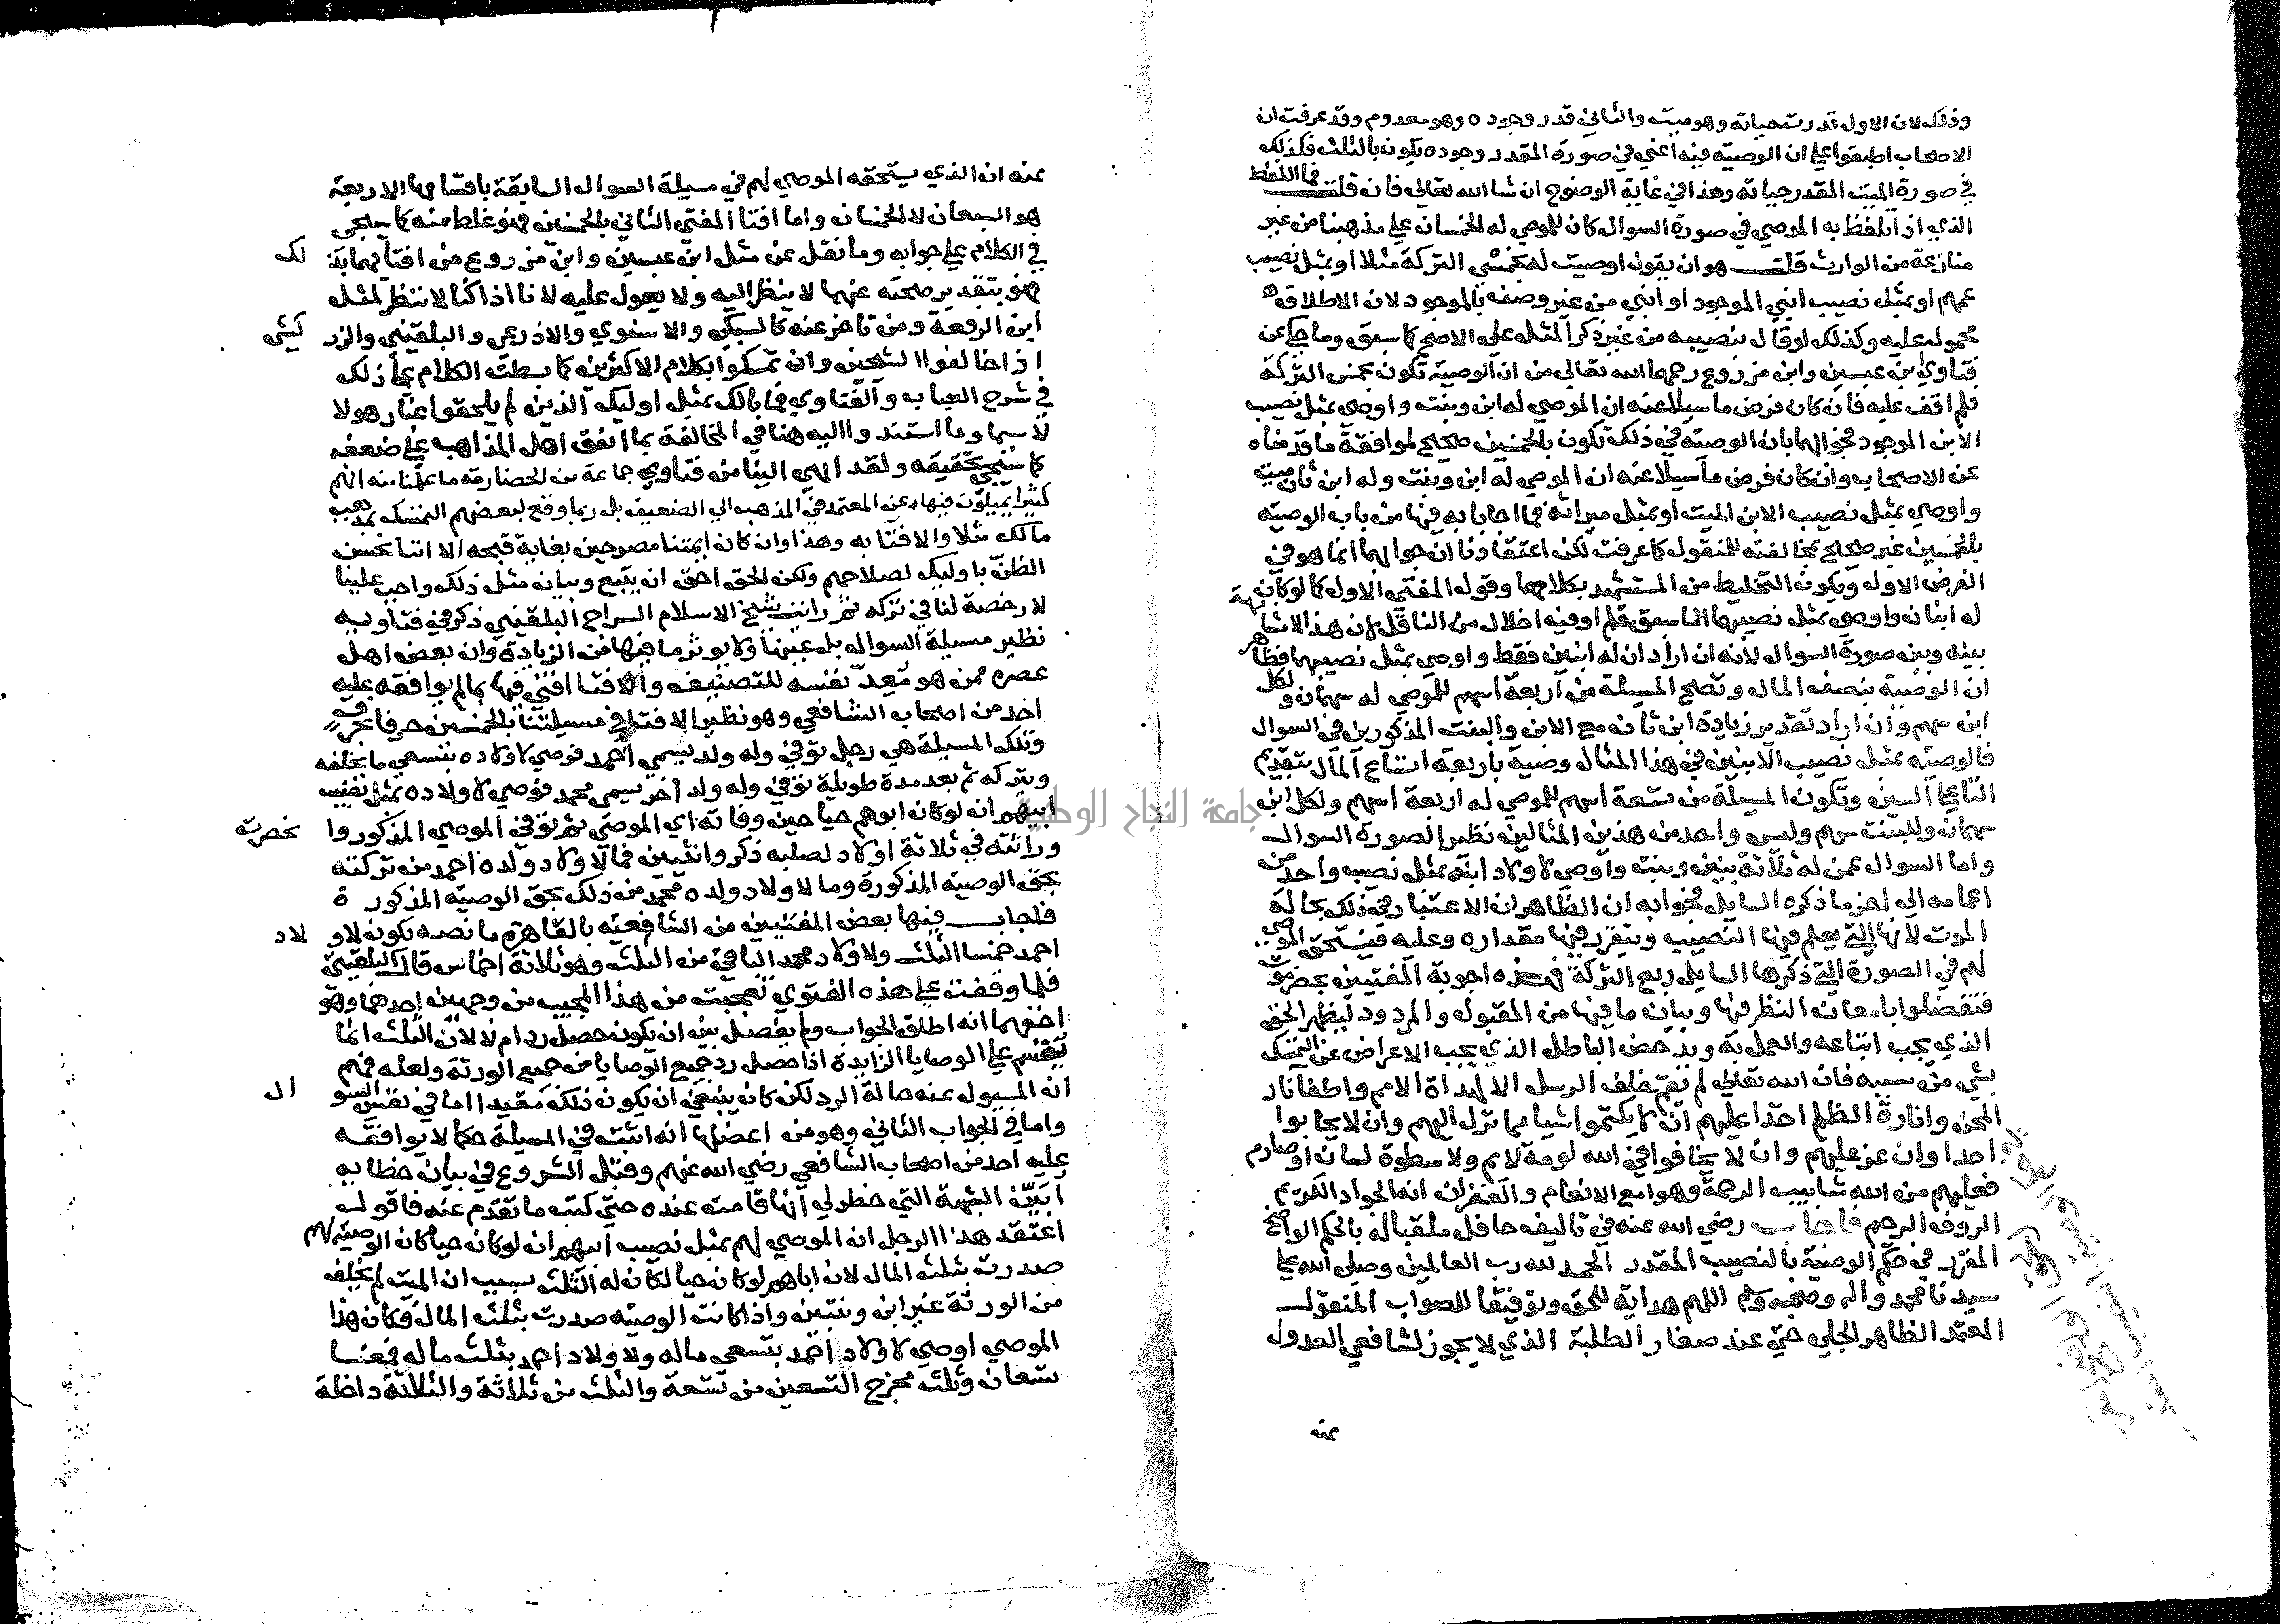 وذلك لان الاول قدرت حياته وهو ميت والثاني قدر وجوده وهو معدوم وقد عرفت ان
الاصحاب اطبقوا على ان الوصية فيه اعني في صورة المقدر وجوده يكون بالثلث فكذلك
في صورة الميت المقدر حياته وهذا في غاية الوضوح ان شا الله تعالى فان قلت فما اللفظ
الذي اذا تلفظ به الموصي في صورة السوال كان للموصي له الخمسان على مذهبنا من غير
منازعة من الوارث قلت هو ان يقول اوصيت له بخمسي التركة مثلا او بمثل نصيب
عمهم او بمثل نصيب ابني الموجود او ابني من غير وصفه بالموجود لان الاطلاق
محمول عليه وكذلك لو قال بنصيبه من غير ذكر المثل على الاصح كما سبق وما حكي عن
فتاوي ابن عبسين وابن مزروع رحمهما الله تعالى من ان الوصية تكون بخمس التركة
فلم اقف عليه فان كان فرض ما سيلا عنه ان الموصي له ابن وبنت واوصى بمثل نصيب
الابن الموجود فجوابهما بان الوصية في ذلك تكون بالخمسين صحيح لموافقة ما قدمناه
عن الاصحاب وان كان فرض ما سيلا عنه ان الموصي له ابن وبنت وله ابن ثان ميت
واوصي بمثل نصيب الابن الميت او بمثل ميراثه فما اجابا به فيها من باب الوصية
بالخمسين غير صحيح بمخالفته للمنقول كما عرفت لكن اعتقادنا ان جوابهما انما هو في
الفرض الاول ويكون التخليط من المستشهد بكلامهما وقول المفتي الاول كما لو كان
له ابنان واوصى بمثل نصيبهما الما سبق قلم او فيه اخلال من الناقل لان هذا لا مشابهة
بينه وبين صورة السوال لانه ان اراد ان له ابنين فقط واوصي بمثل نصيبهما فظاهر
ان الوصية بنصف المال وتصح المسيلة من اربعة اسهم للموصي له سهمان ولكل
ابن سهم وان اراد تقدير زيادة ابن ثان مع الابن والبنت المذكورين في السوال
فالوصية بمثل نصيب الابنين في هذا المثال وصية باربعة اتساع المال بتقديم
التا على السين وتكون المسيلة من تسعة اسهم للموصي له اربعة اسهم ولكل ابن
سهمان وللبنت سهم وليس واحد من هذين المثالين نظيرا لصورة السوال
واما السوال عمن له ثلاثة بنين وبنت واوصي لاولاد ابنه بمثل نصيب واحد من
اعمامه الى اخر ما ذكره السايل فجوابه ان الظاهر ان الاعتبار في ذلك بحالة
الموت لانها التي يعلم فيها النصيب ويتقرر فيها مقداره وعليه فيستحق الموصي
لهم في الصورة التي ذكرها السايل ربع التركة فهذه اجوبة المفتيين بحضرموت
فتفضلوا بامعان النظر فيها وبيان ما فيها من المقبول والمردود ليظهر الحق
الذي يجب اتباعه والعمل به ويدحض الباطل الذي يجب الاعراض عن التمسك
بشي من سببه فان الله تعالى لم يقم خلف الرسل الا لهداة الامم واطفا نار
المحن وانارة الظلم اخذا عليهم ان لا يكتموا شيا مما نزل اليهم وان لا يحابوا
احدا وان عز عليهم وان لا يخافوا في الله لومة لايم ولا سطوة لسان او صارم
فعليهم من الله شابيب الرحمة وهوامع الانعام والغفران انه الجواد الكريم
الروف الرحيم فاجاب رضي الله عنه في تاليف حافل ملقبا له بالحكم الواضح
المقرر في حكم الوصية بالنصيب المقدر الحمد لله رب العالمين وصلى الله على
سيدنا محمد واله وصحبه وسلم اللهم هداية للحق وتوفيقا للصواب المنقول
المعتمد الظاهر الجلي حتى عند صغار الطلبة الذي لا يجوز لشافعي العدول
عنه
عنه ان الذي يستحقه الموصي لهم في مسيلة السوال السابقة باقسامها الاربعة
هو السبعان لا الخمسان واما افتا المفتي الثاني بالخمسين فهو غلط منه كما سيجي
في الكلام على جوابه وما نقل عن مثل ابن عبسين وابن مزروع من افتائهما بذلك
فهو بتقدير صحته عنهما لا ينظر اليه ولا يعول عليه لانا اذا كنا لا ننتظر لمثل
ابن الرفعة ومن تاخر عنه كالسبكي والاسنوي والاذرعي والبلقيني والزركشي
اذا خالفوا الشيخين وان تمسكوا بكلام الاكثرين كما بسطت الكلام على ذلك
في شرح العباب والفتاوي فما بالك بمثل اوليك الذين لم يلحقوا غبار هولا
لا سيما وما استندوا اليه هنا في المخالفة بما اتفق اهل المذاهب على ضعفه
كما سيجي تحقيقه ولقد انهي الينا من فتاوي جماعة من الحضارمة ما علمنا منه انهم
كثيرا يميلون فيها عن المعتمد في المذهب الي الضعيف بل ربما وقع لبعضهم التمسك بمذهب
مالك مثلا والافتا به وهذا وان كان ايمتنا مصرحين بغاية قبحه الا اننا نحسن
الظن باوليك لصلاحهم ولكن الحق احق ان يتبع وبيان مثل ذلك واجب علينا
لا رخصة لنا في تركه ثم رايت شيخ الاسلام السراج البلقيني ذكر في فتاويه
نظير مسيلة السوال بل عينها ولا يوثر ما فيها من الزيادة وان بعض اهل
عصره ممن هو معد نفسه للتصنيف والافتا افتى فيها بما لم يوافقه عليه
احد من اصحاب الشافعي وهو نظير الافتا في مسيلتنا بالخمسين حرفا بحرف
وتلك المسيلة هي رجل توفي وله ولد يسمى احمد فوصي لاولاده بتسعي ما يخلفه
ويتركه ثم بعد مدة طويلة توفي وله ولد اخر يسمى محمد فوصي لاولاده بمثل نصيب
ابيهم ان لو كان ابوهم حيا حين وفاته اي الموصي ثم توفي الموصي المذكور وانحصرت
وراثته في ثلاثة اولاد لصلبه ذكر وانثيين فما لاولاد ولده احمد من تركته
بحق الوصية المذكورة وما لاولاد ولده محمد من ذلك بحق الوصية المذكورة
فاجاب فيها بعض المفتيين من الشافعية بالقاهرة ما نصه يكون لاولاد
احمد خمسا الثلث ولاولاد محمد الباقي من الثلث وهو ثلاثة اخماس قال البلقيني
فلما وقفت على هذه الفتوي تعجبت من هذا المجيب من وجهين احدهما وهو
اخفهما انه اطلق الجواب ولم يفصل بين ان يكون حصل رد ام لا لان الثلث انما
يقسم على الوصايا الزايدة اذا حصل رد جميع الوصايا من جميع الورثة ولعله فهم
ان المسيول عنه حالة الرد لكن كان ينبغي ان يكون ذلك مقيدا اما في نفس السوال
واما في الجواب الثاني وهو من اعضلها انه اثبت في المسيلة حكما لا يوافقه
عليه احد من اصحاب الشافعي رضي الله عنهم وقبل الشروع في بيان خطايه
ابين الشبهة التي خطر لي انها قامت عنده حتى كتب ما تقدم عنه فاقول
اعتقد هذا الرجل ان الموصي لهم بمثل نصيب ابيهم ان لو كان حيا كان الوصية لهم
صدرت بثلث المال لان اباهم لو كان حيا لكان له الثلث بسبب ان الميت لم يخلف
من الورثة غير ابن وبنتين واذا كانت الوصية صدرت بثلث المال فكان هذا
الموصي اوصي لاولاد احمد بتسعي ماله ولاولاد احمد بثلث ماله فمعنا
تسعان وثلث مخرج التسعين من تسعة والثلث من ثلاثة والثلاثة داخلة
جامعة النجاح الوطنية